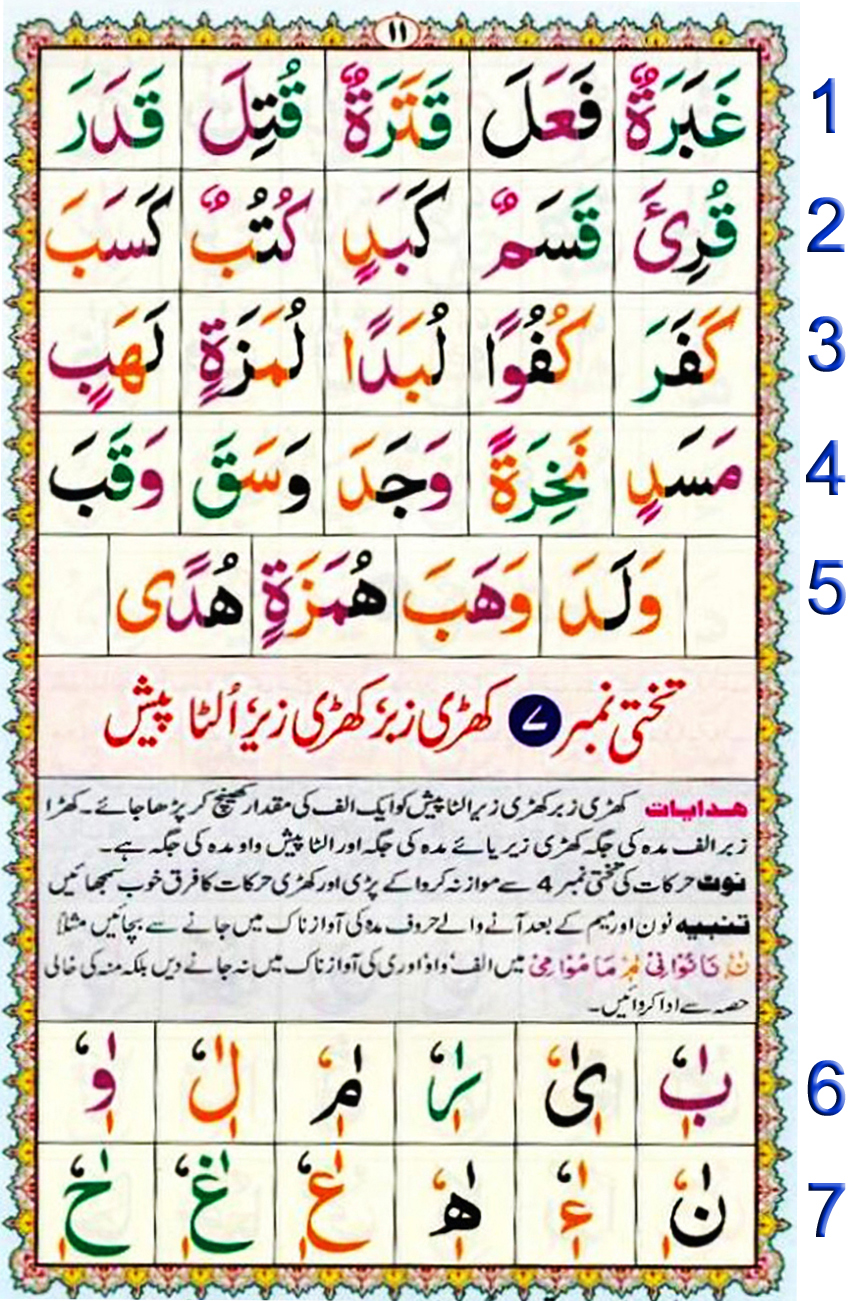 ۱۱
غَبَرَةٌ فَعَلَ قَتَرَةٌ قُتِلَ قَدَرَ 1
قُرِئَ قَسَمٌ كَبَدٍ كُتُبٌ كَسَبَ 2
كَفَرَ كُفُوًا لُبَدًا لُمَزَةٍ لَهَبٍ 3
مَسَدٍ نَخِرَةً وَجَدَ وَسَقَ وَقَبَ 4
وَلَدَ وَهَبَ هُمَزَةٍ هُدًى 5
تختی نمبر ۷ کھڑی زبر کھڑی زیر اُلٹا پیش
ھدایات کھڑی زبر کھڑی زیر الٹا پیش کو ایک الف کی مقدار کھینچ کر پڑھا جائے۔ کھڑا
زبر الف مدہ کی جگہ کھڑی زیر یائے مدہ کی جگہ اور الٹا پیش واو مدہ کی جگہ ہے۔
نوٹ حرکات کی تختی نمبر 4 سے موازنہ کروا کے پڑی اور کھڑی حرکات کا فرق خوب سمجھائیں
تنبیہ نون اور میم کے بعد آنے والے حروف مدہ کی آواز ناک میں جانے سے بچائیں مثلاً
نَا نُوْا نِیْ مَا مُوْا مِیْ میں الف واؤ اور ی کی آواز ناک میں نہ جانے دیں بلکہ منہ کی خالی
حصہ سے ادا کروائیں۔
بٰ ىٰ رٰ مٰ لٰ وٰ 6
نٰ ءٰ هٰ عٰ غٰ حٰ 7